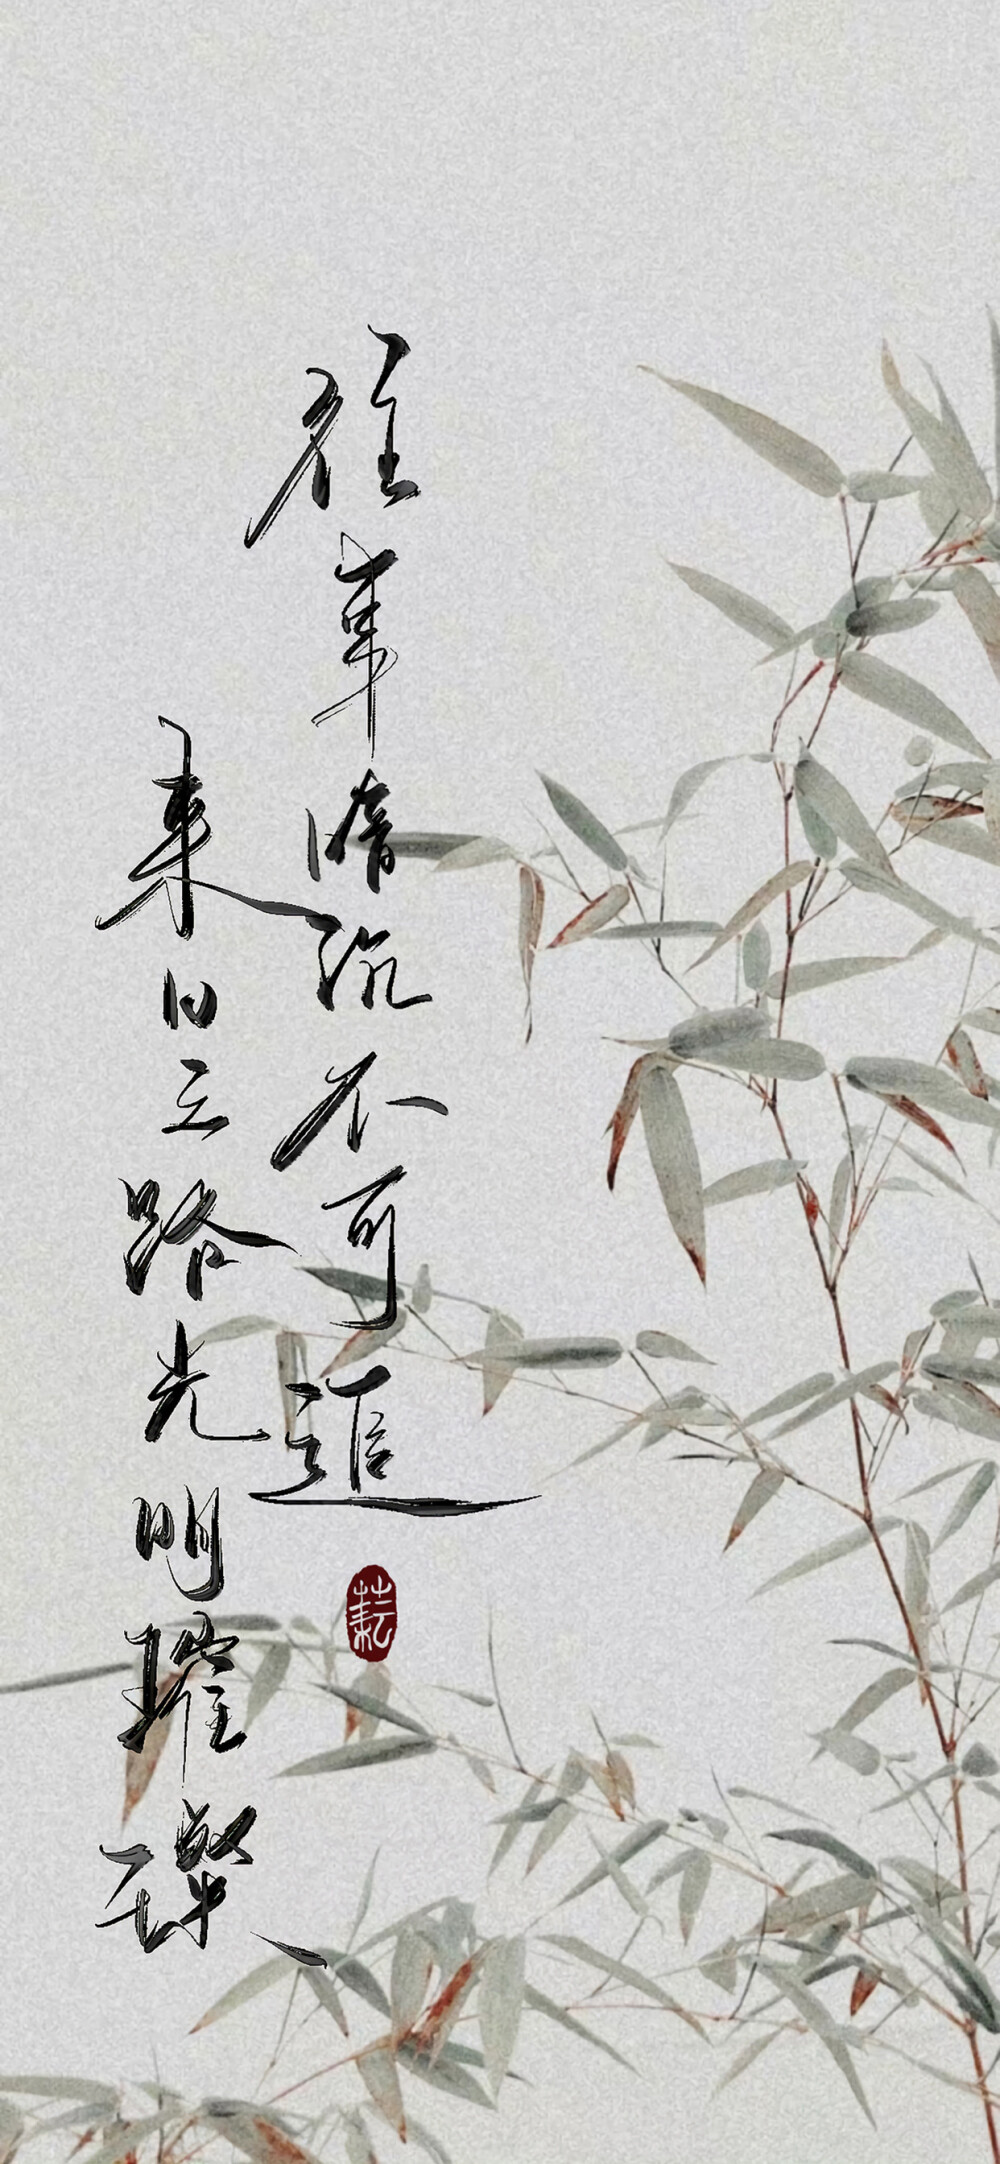 往事暗沉不可追
来日之路光明璀璨
耘